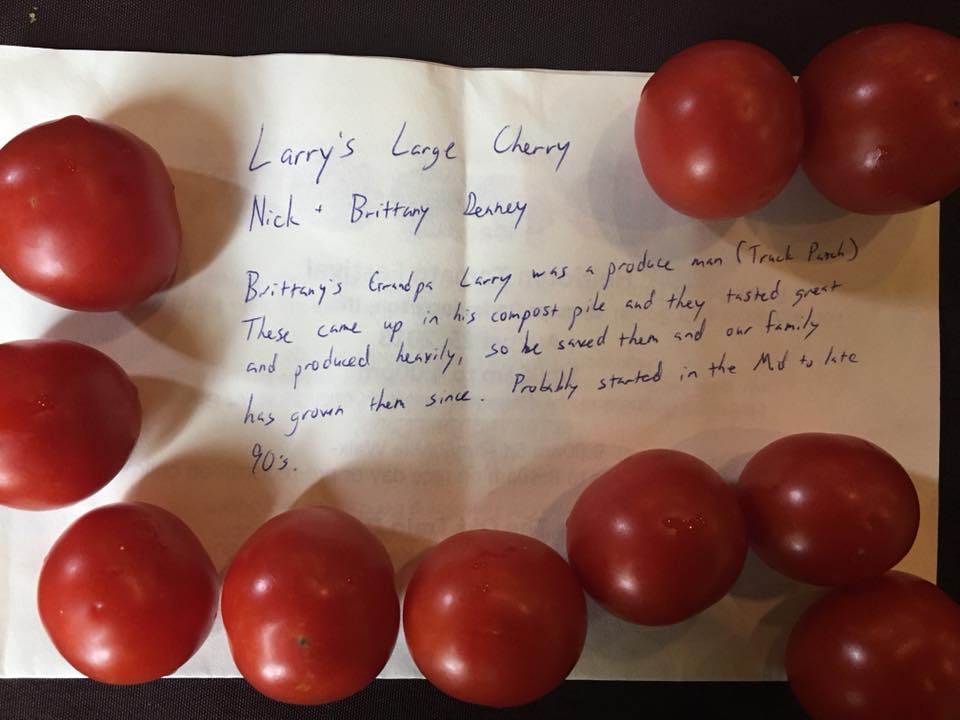 Larry's Large Cherry
Nick + Brittany Denney
Brittany's Grandpa Larry was a produce man (Truck Patch)
These came up in his compost pile and they tasted great
and produced heavily, so he saved them and our family
has grown them since. Probably started in the Mid to late
90's.